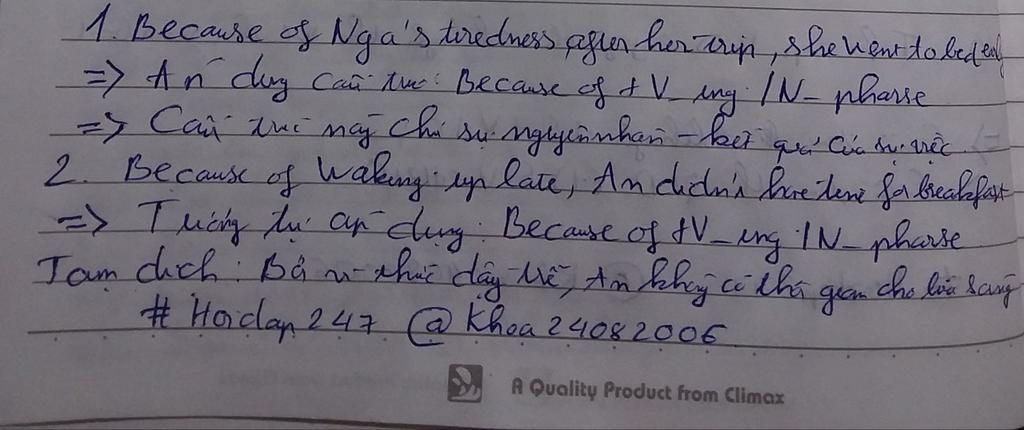 1. Because of Nga's tiredness after her trip, she went to bed early
=> Áp dụng cấu trúc: Because of + V_ing / N_pharse
=> Cấu trúc này chỉ sự nguyên nhân - kết quả của sự việc
2. Because of waking up late, An didn't have time for breakfast
=> Tương tự áp dụng: Because of + V_ing / N_pharse
Tạm dịch: Bởi vì thức dậy trễ, An không có thời gian cho bữa sáng
# Hoidap247 @Khoa24082006
A Quality Product from Climax